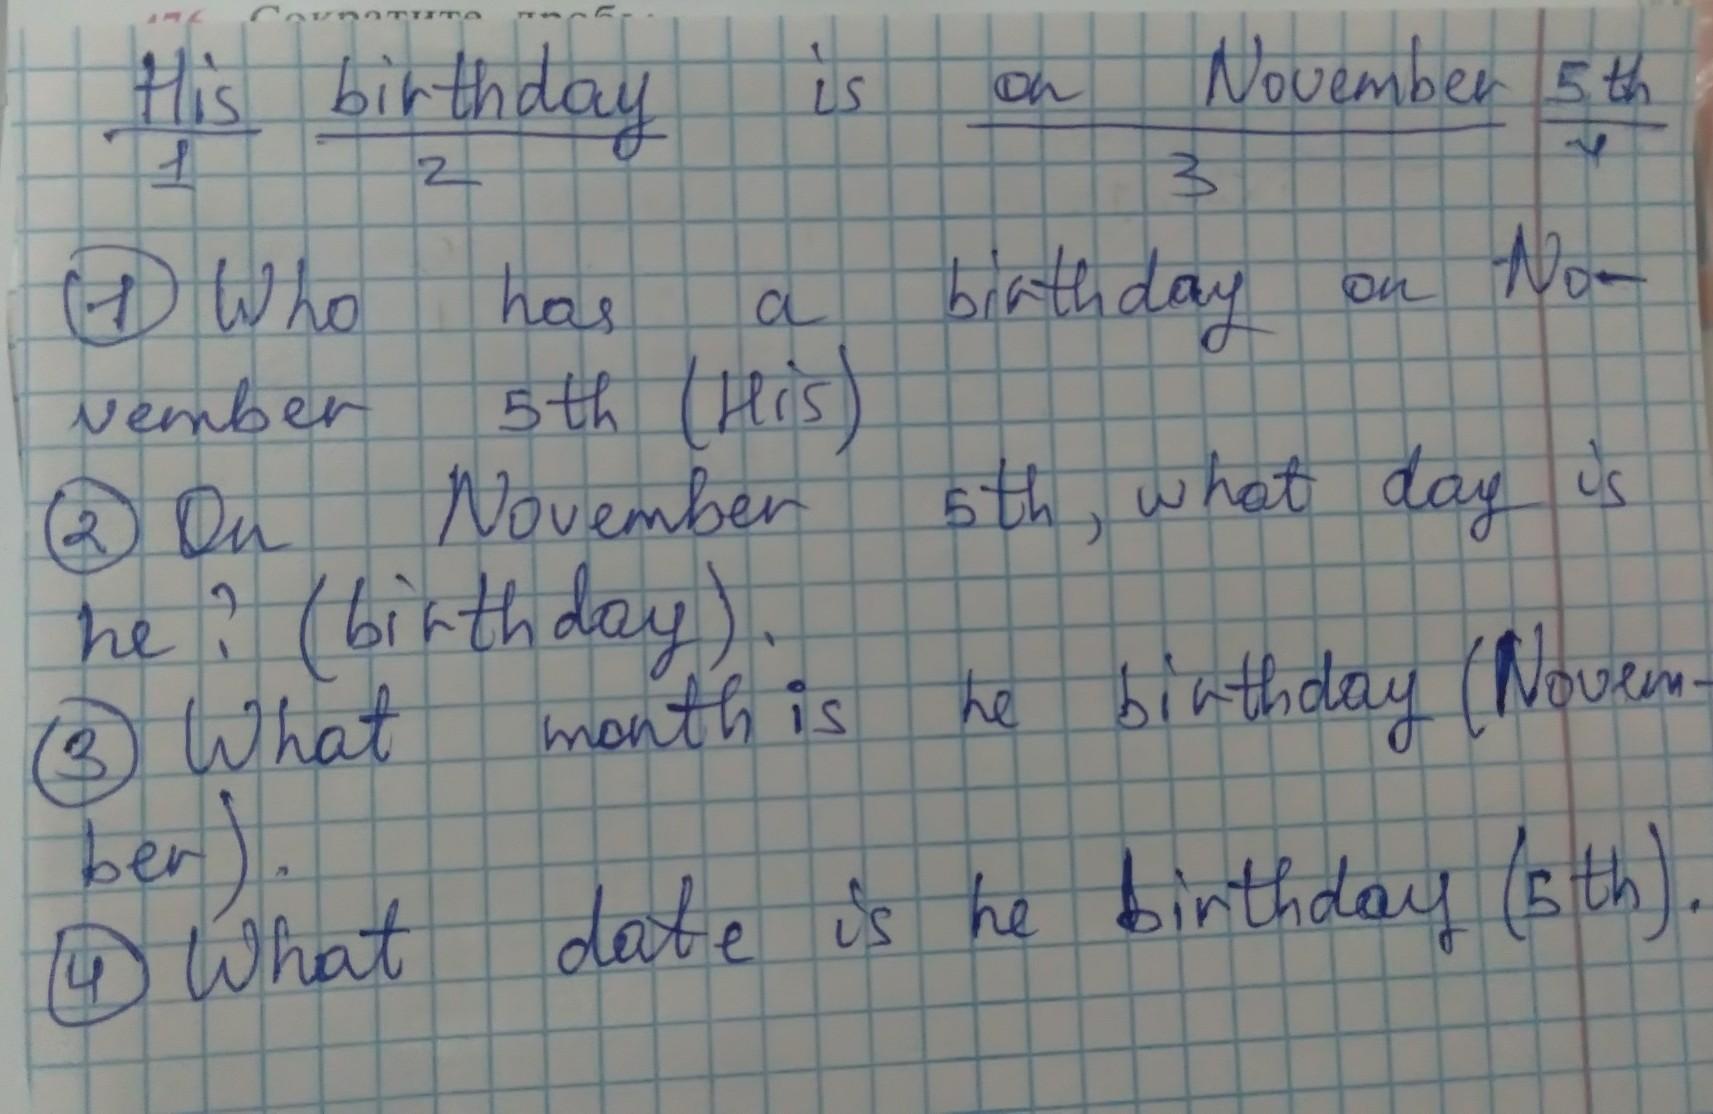 His birthday is on November 5th
1 2 3 4
① Who has a birthday on No-
vember 5th (His)
② On November 5th, what day is
he? (birthday).
③ What month is he birthday (Novem-
ber).
④ What date is he birthday (5th).